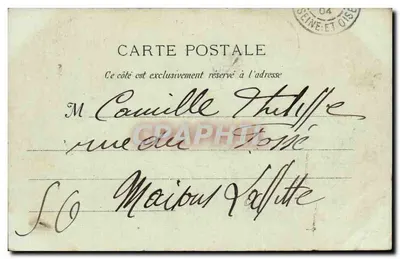 04
SEINE-ET-OISE
CARTE POSTALE
Ce côté est exclusivement réservé à l'adresse
M Camille Philippe
rue du Fossé
Maisons Laffitte
S-O